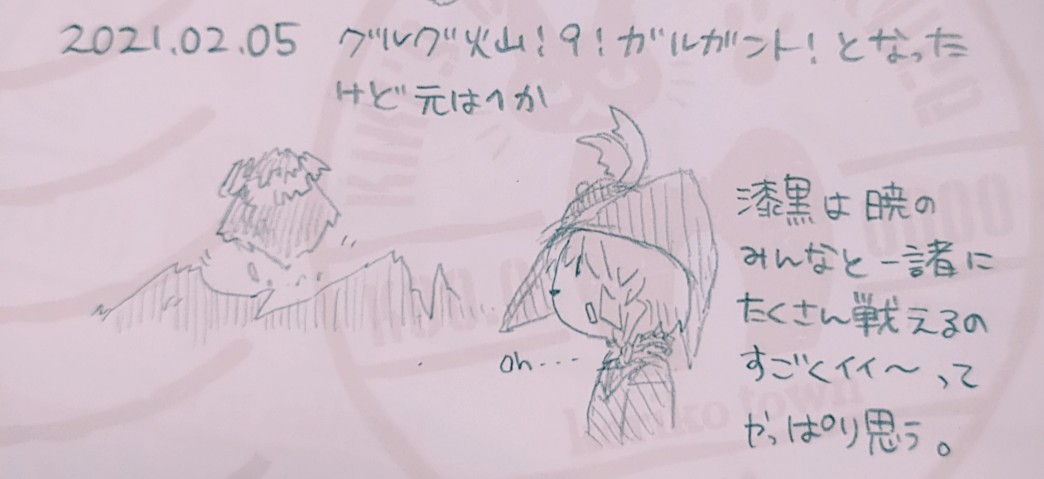 2021.02.05 グルグ火山!9!ガルガント!となった
けど元は1か
漆黒は暁の
みんなと一諸に
たくさん戦えるの
すごくイイ〜って
やっぱり思う。
oh...